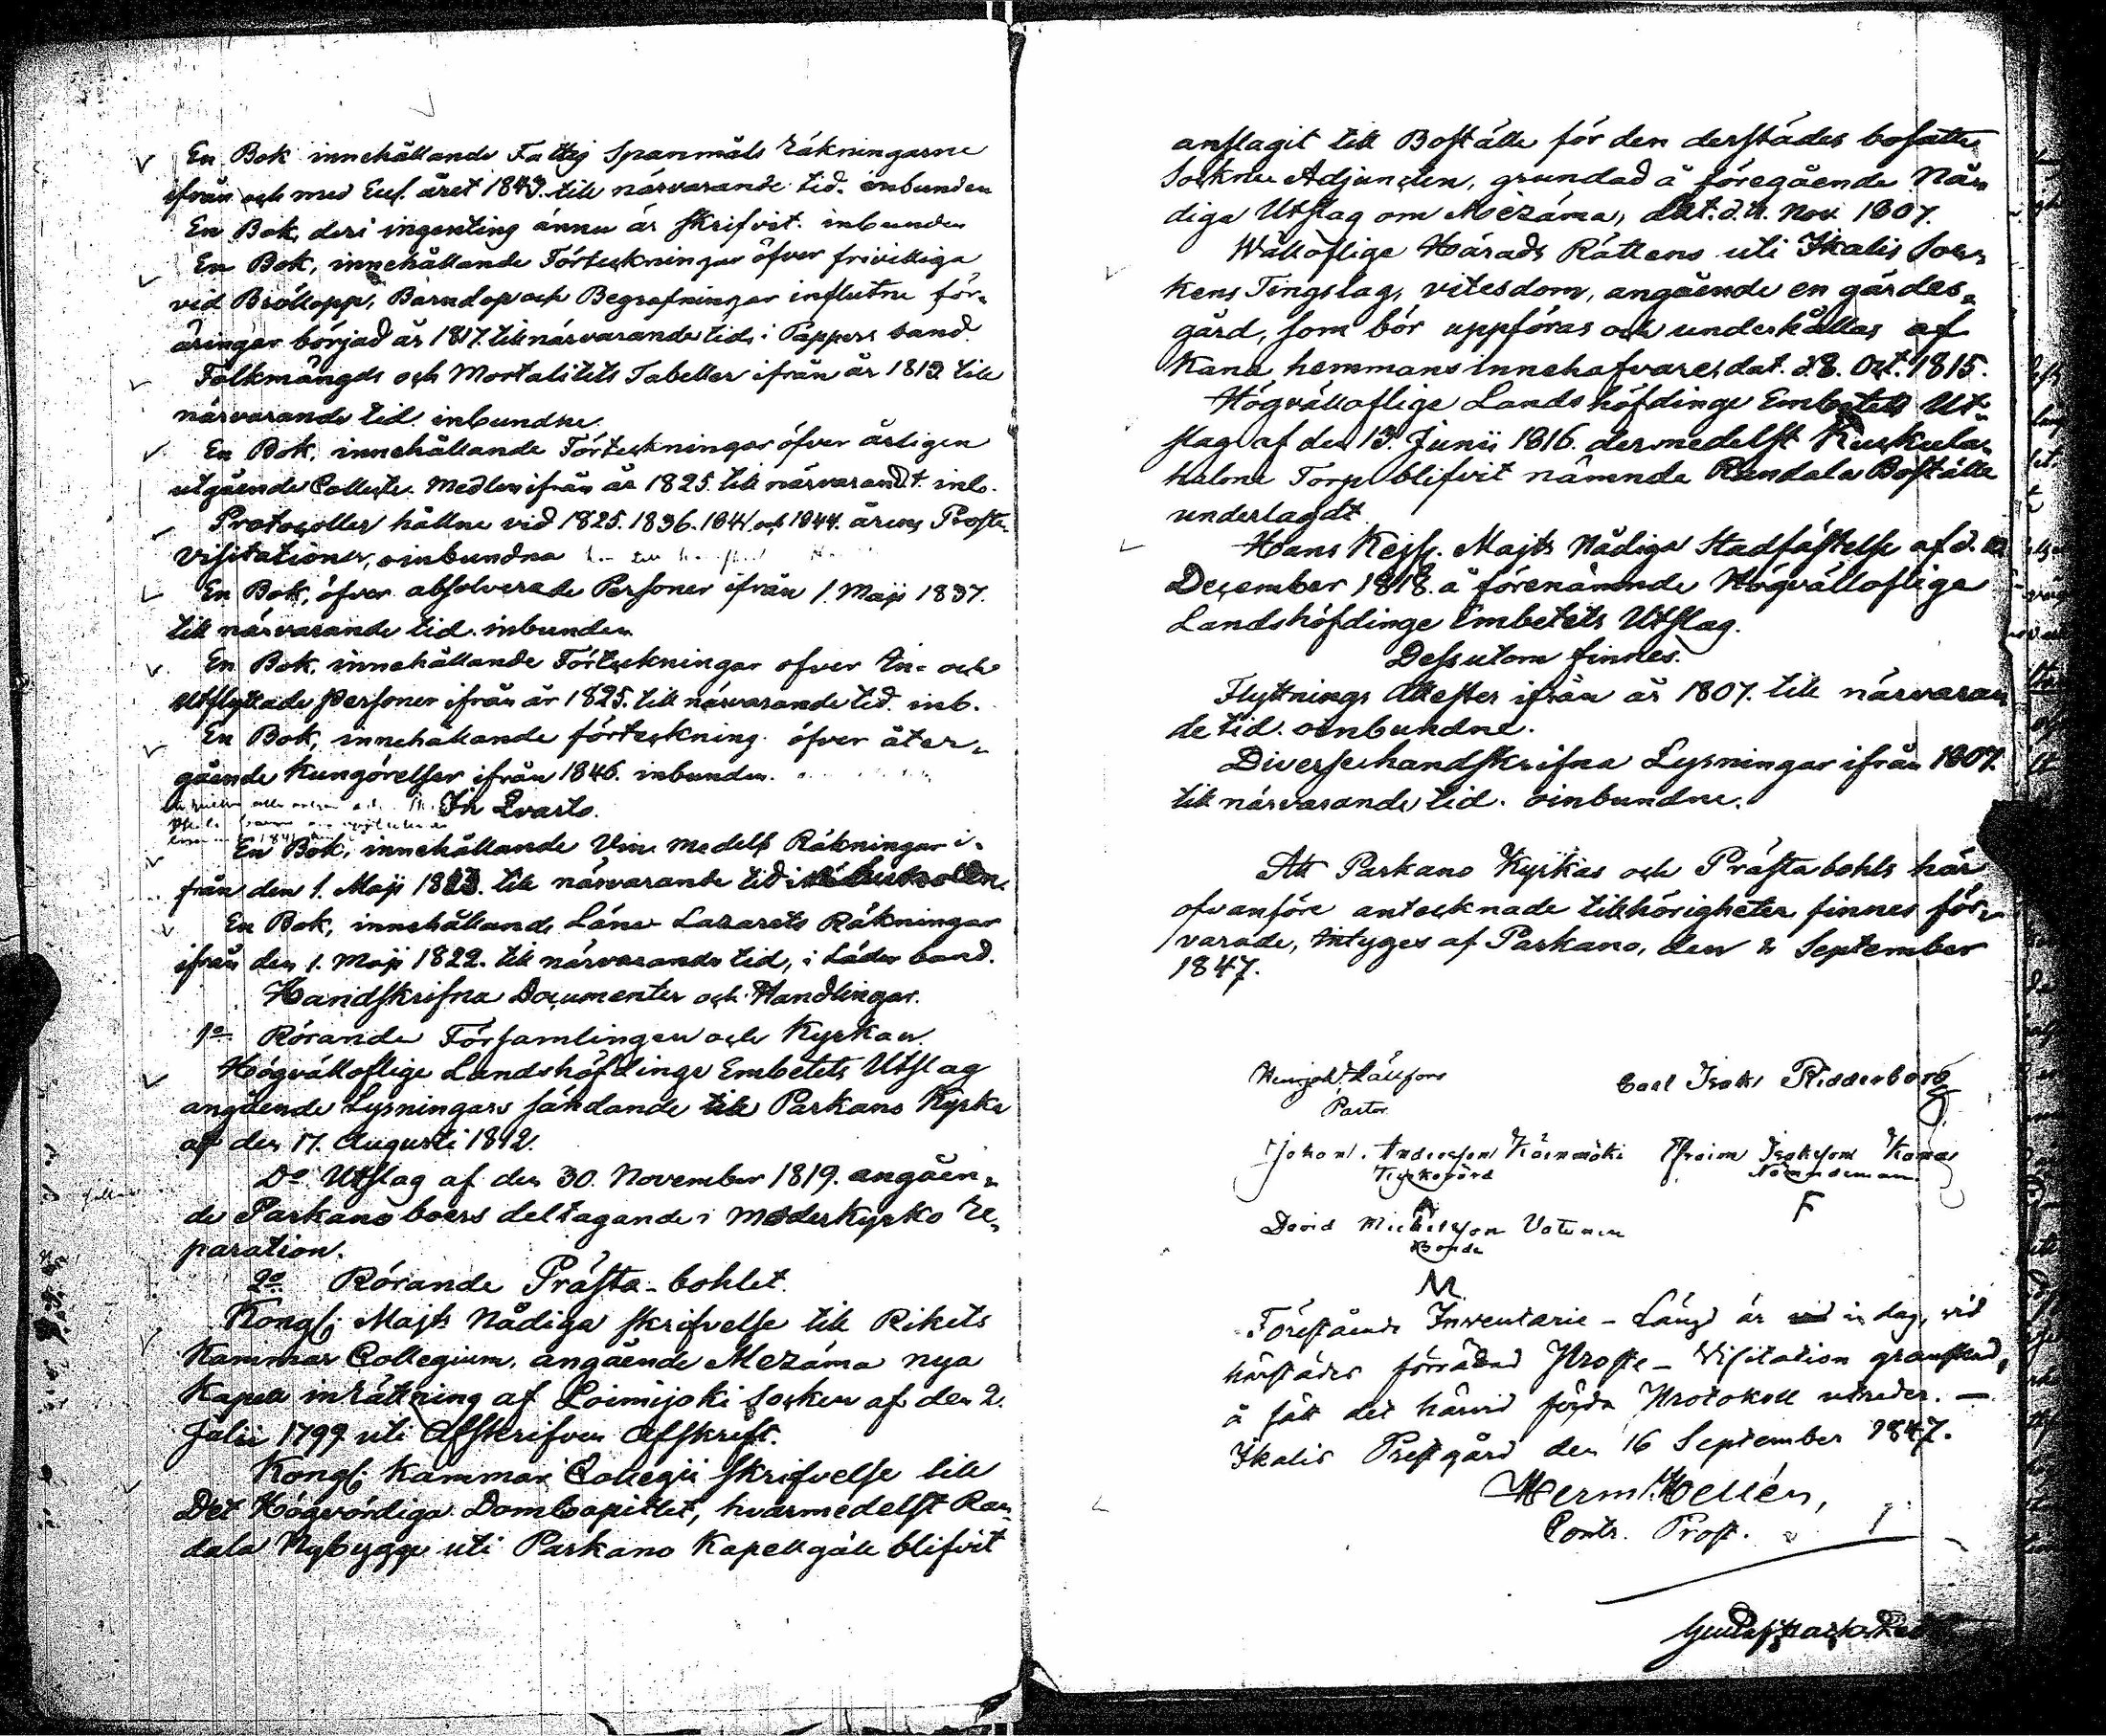 En Bok innehållande Fattig Spanmåls Räkningarne
ifrån och med Eccl. året 1843. till närvarande tid. inbunden
En Bok, deri ingenting ännu är skrifvit. inbunden
En Bok, innehållande Förteckningar öfver frivilliga
vid Bröllopp, Barndop och Begrafningar influtne för-
äringar börjad år 1817. till närvarande tid, i Pappers band.
Folkmängds och Mortalitets Tabeller ifrån år 1812 till
närvarande tid. inbundne.
En Bok, innehållande Förteckningar öfver årligen
utgående Collecte Medlen ifrån år 1825. till närvarand. t. inb.
Protocoller hållne vid 1825. 1836. 1841 och 1844. årens Proste
Visitationer, oinbundna
En Bok, öfver absolverade Personer ifrån 1. Maji 1837.
till närvarande tid. inbunden
En Bok, innehållande Förteckningar öfver In- och
Utflyttade Personer ifrån år 1825. till närvarande tid. inb.
En Bok, innehållande förteckning öfver åter-
gående Kungörelser ifrån 1846. inbunden.
In Qvarto.
En Bok, innehållande Vin medels Räkningar i-
från den 1. Maji 1823. till närvarande tid
En Bok, innehålland. Läns Lazarets Räkningar
ifrån den 1. Maji 1822. till närvarande tid, i Läder band.
Handskrifna Documenter och Handlingar.
1o Rörande Församlingen och Kyrkan.
Högvälloflige Landshöfdinge Embetets Utslag
angående Lysningars sändande till Parkano Kyrka
af den 17. Augusti 1812.
Do Utslag af den 30. November 1819. angåen-
de Parkanoboers deltagande i Moderkyrko Re-
paration.
2o Rörande Prästa-bohlet.
Kongl. Majts Nådiga skrifvelse till Rikets
Kammar Collegium, angående Mezäma nya
Kapell inrättning af Loimijoki Socken af den 2.
Julii 1799 uti Afskrifven Afskrift.
Kongl. Kammar Collegii skrifvelse till
Det Högvördiga Domkapitlet, hvarmedelst Ran-
dala Nybygge uti Parkano Kapellgäll blifvit
anslagit till Boställe för den derstädes bosatte
Sockne Adjuncten, grundad å föregående Nå-
diga Utslag om Mezäma, dat. d. Nov. 1807.
Wälloflige Härads Rättens uti Ikalis Soc-
kens Tingslag, vitesdom, angående en gärdes-
gård, som bör uppföras och underhållas af
Kana hemmans innehafvare, dat. d. 8. Oct. 1815.
Högvälloflige Landshöfdinge Embetets Ut-
slag af den 13. Junii 1816. dermedelst Kuckula-
halme Torp blifvit nämnde Randala Boställe
underlagdt
Hans Kejs. Majts Nådiga Stadfästelse af d.
December 1818. å förenämnde Högvälloflige
Landshöfdinge Embetets Utslag.
Dessutom finnes.
Flyttnings Attester ifrån år 1807. till närvaran
de tid. oinbundne.
Diverse handskrifna Lysningar ifrån 1807.
till närvarande tid. oinbundne.
Att Parkano Kyrkas och Prästabohls här
ofvanföre antecknade tillhörigheter finnes för-
varade, intygas af Parkano, den September
1847.
Pastor
Carl Isaks Ridderborg
Johan Andersson Kärnmäki Efraim Isaksson Kana
Kyrkovärd Nämndeman
F
David Michelsson Vatunen
Bonde
M
Förestående Inventarie-Längd är i dag, vid
härstädes förrättad Proste-Visitation granskad,
å sätt det härvid förda Protokoll utreder. —
Ikalis Prestgård den 16 September 1847.
Herm. Hellén,
Contr. Prost.